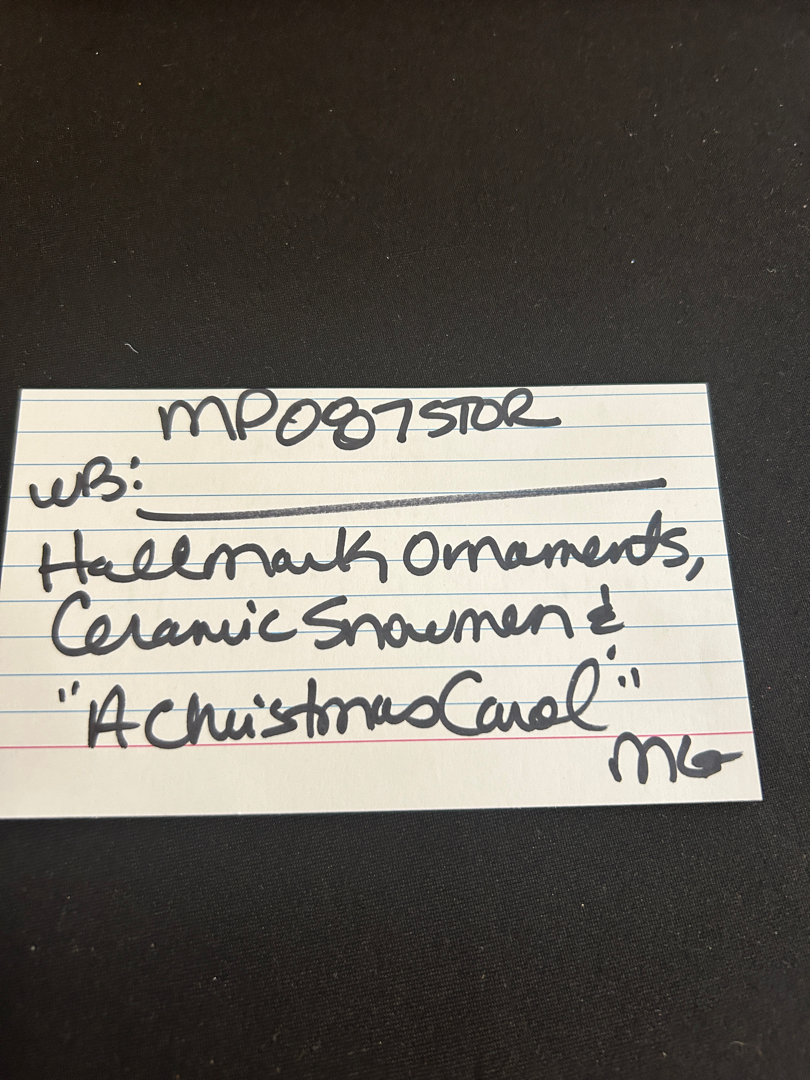 MP087STOR
WB:
Hallmark Ornaments,
Ceramic Snowmen &
"A Christmas Carol"
MG